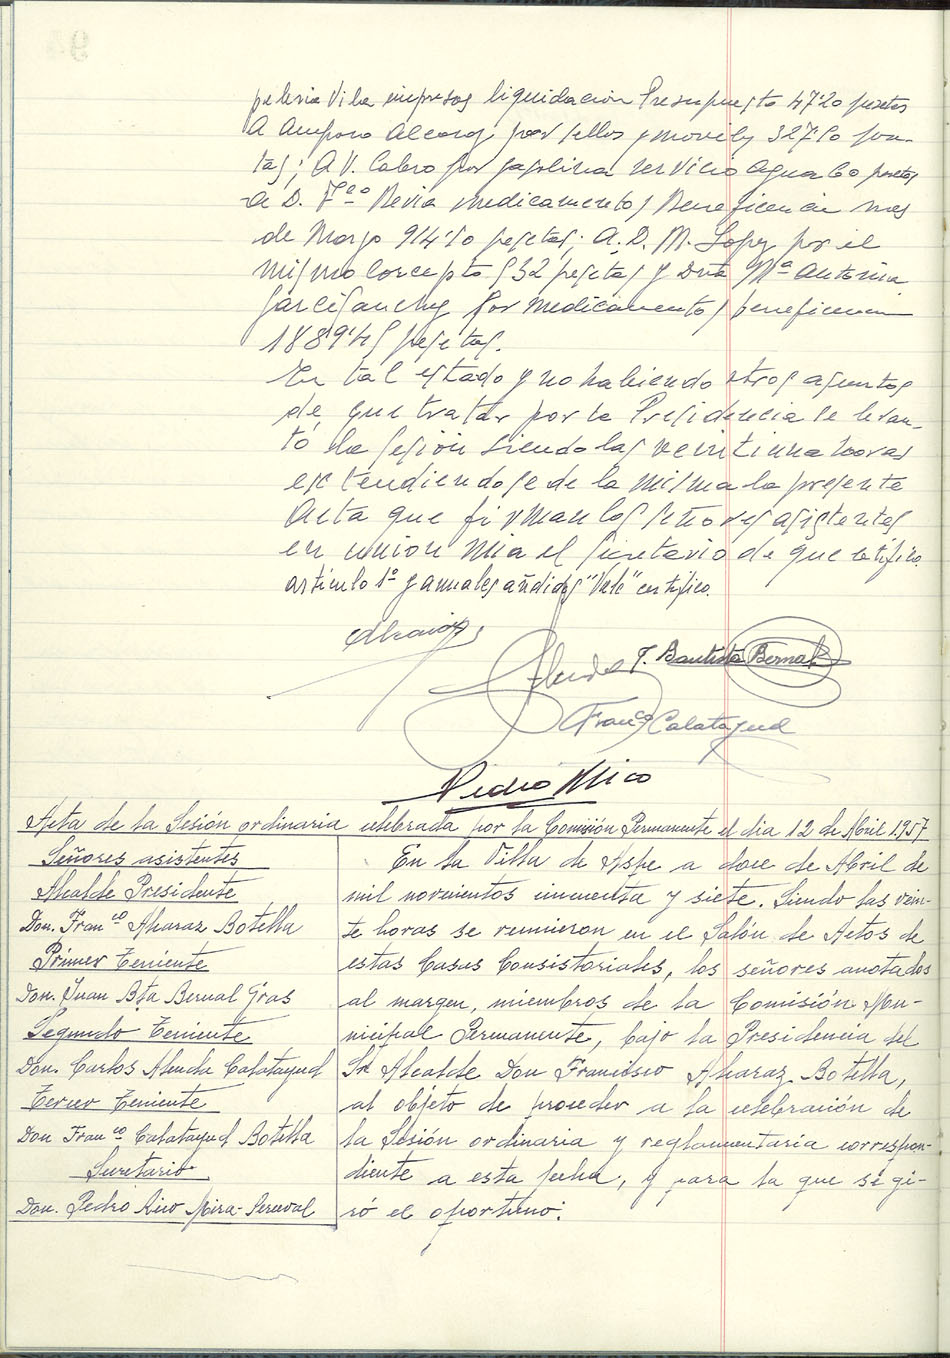 peleria Vila impresos liquidacion Presupuesto 47'20 pesetas
A Amparo Alcaraz por sellos y moviles 327'10 pese-
tas; A V. Calero por gasolina servicio agua 60 pesetas
a D. Fco Revia medicamentos Beneficencia mes
de Marzo 914'10 pesetas: A. D. M. Lopez por el
mismo concepto 532 pesetas y Dña Mª Antonia
por medicamentos beneficencia
1889'45 pesetas.
En tal estado y no habiendo otros asuntos
de que tratar por la Presidencia se levan-
tó la sesión siendo las veintiuna horas
extendiendose de la misma la presente
Acta que firman los señores asistentes
en union mia el Secretario de que certifico.
articulo 1º y anuales añadidos "Vale" certifico.
J. Bautista Bernal
Franco Calatayud
Pedro Rico
Acta de la Sesión ordinaria celebrada por la Comisión Permanente el dia 12 de Abril 1957
Señores asistentes
Alcalde Presidente
Don. Franco Alcaraz Botella
Primer Teniente
Don. Juan Bta Bernal Gras
Segundo Teniente
Don. Carlos Alenda Calatayud
Tercer Teniente
Don Franco Calatayud Botella
Secretario
Don. Pedro Rico Mira-Perceval
En la Villa de Aspe a doce de Abril de
mil novecientos cincuenta y siete. Siendo las vein-
te horas se reunieron en el Salón de Actos de
estas Casas Consistoriales, los señores anotados
al margen, miembros de la Comisión Mu-
nicipal Permanente, bajo la Presidencia del
Sr Alcalde Don Francisco Alcaraz Botella,
al objeto de proceder a la celebración de
la Sesión ordinaria y reglamentaria correspon-
diente a esta fecha, y para la que se gi-
ró el oportuno: